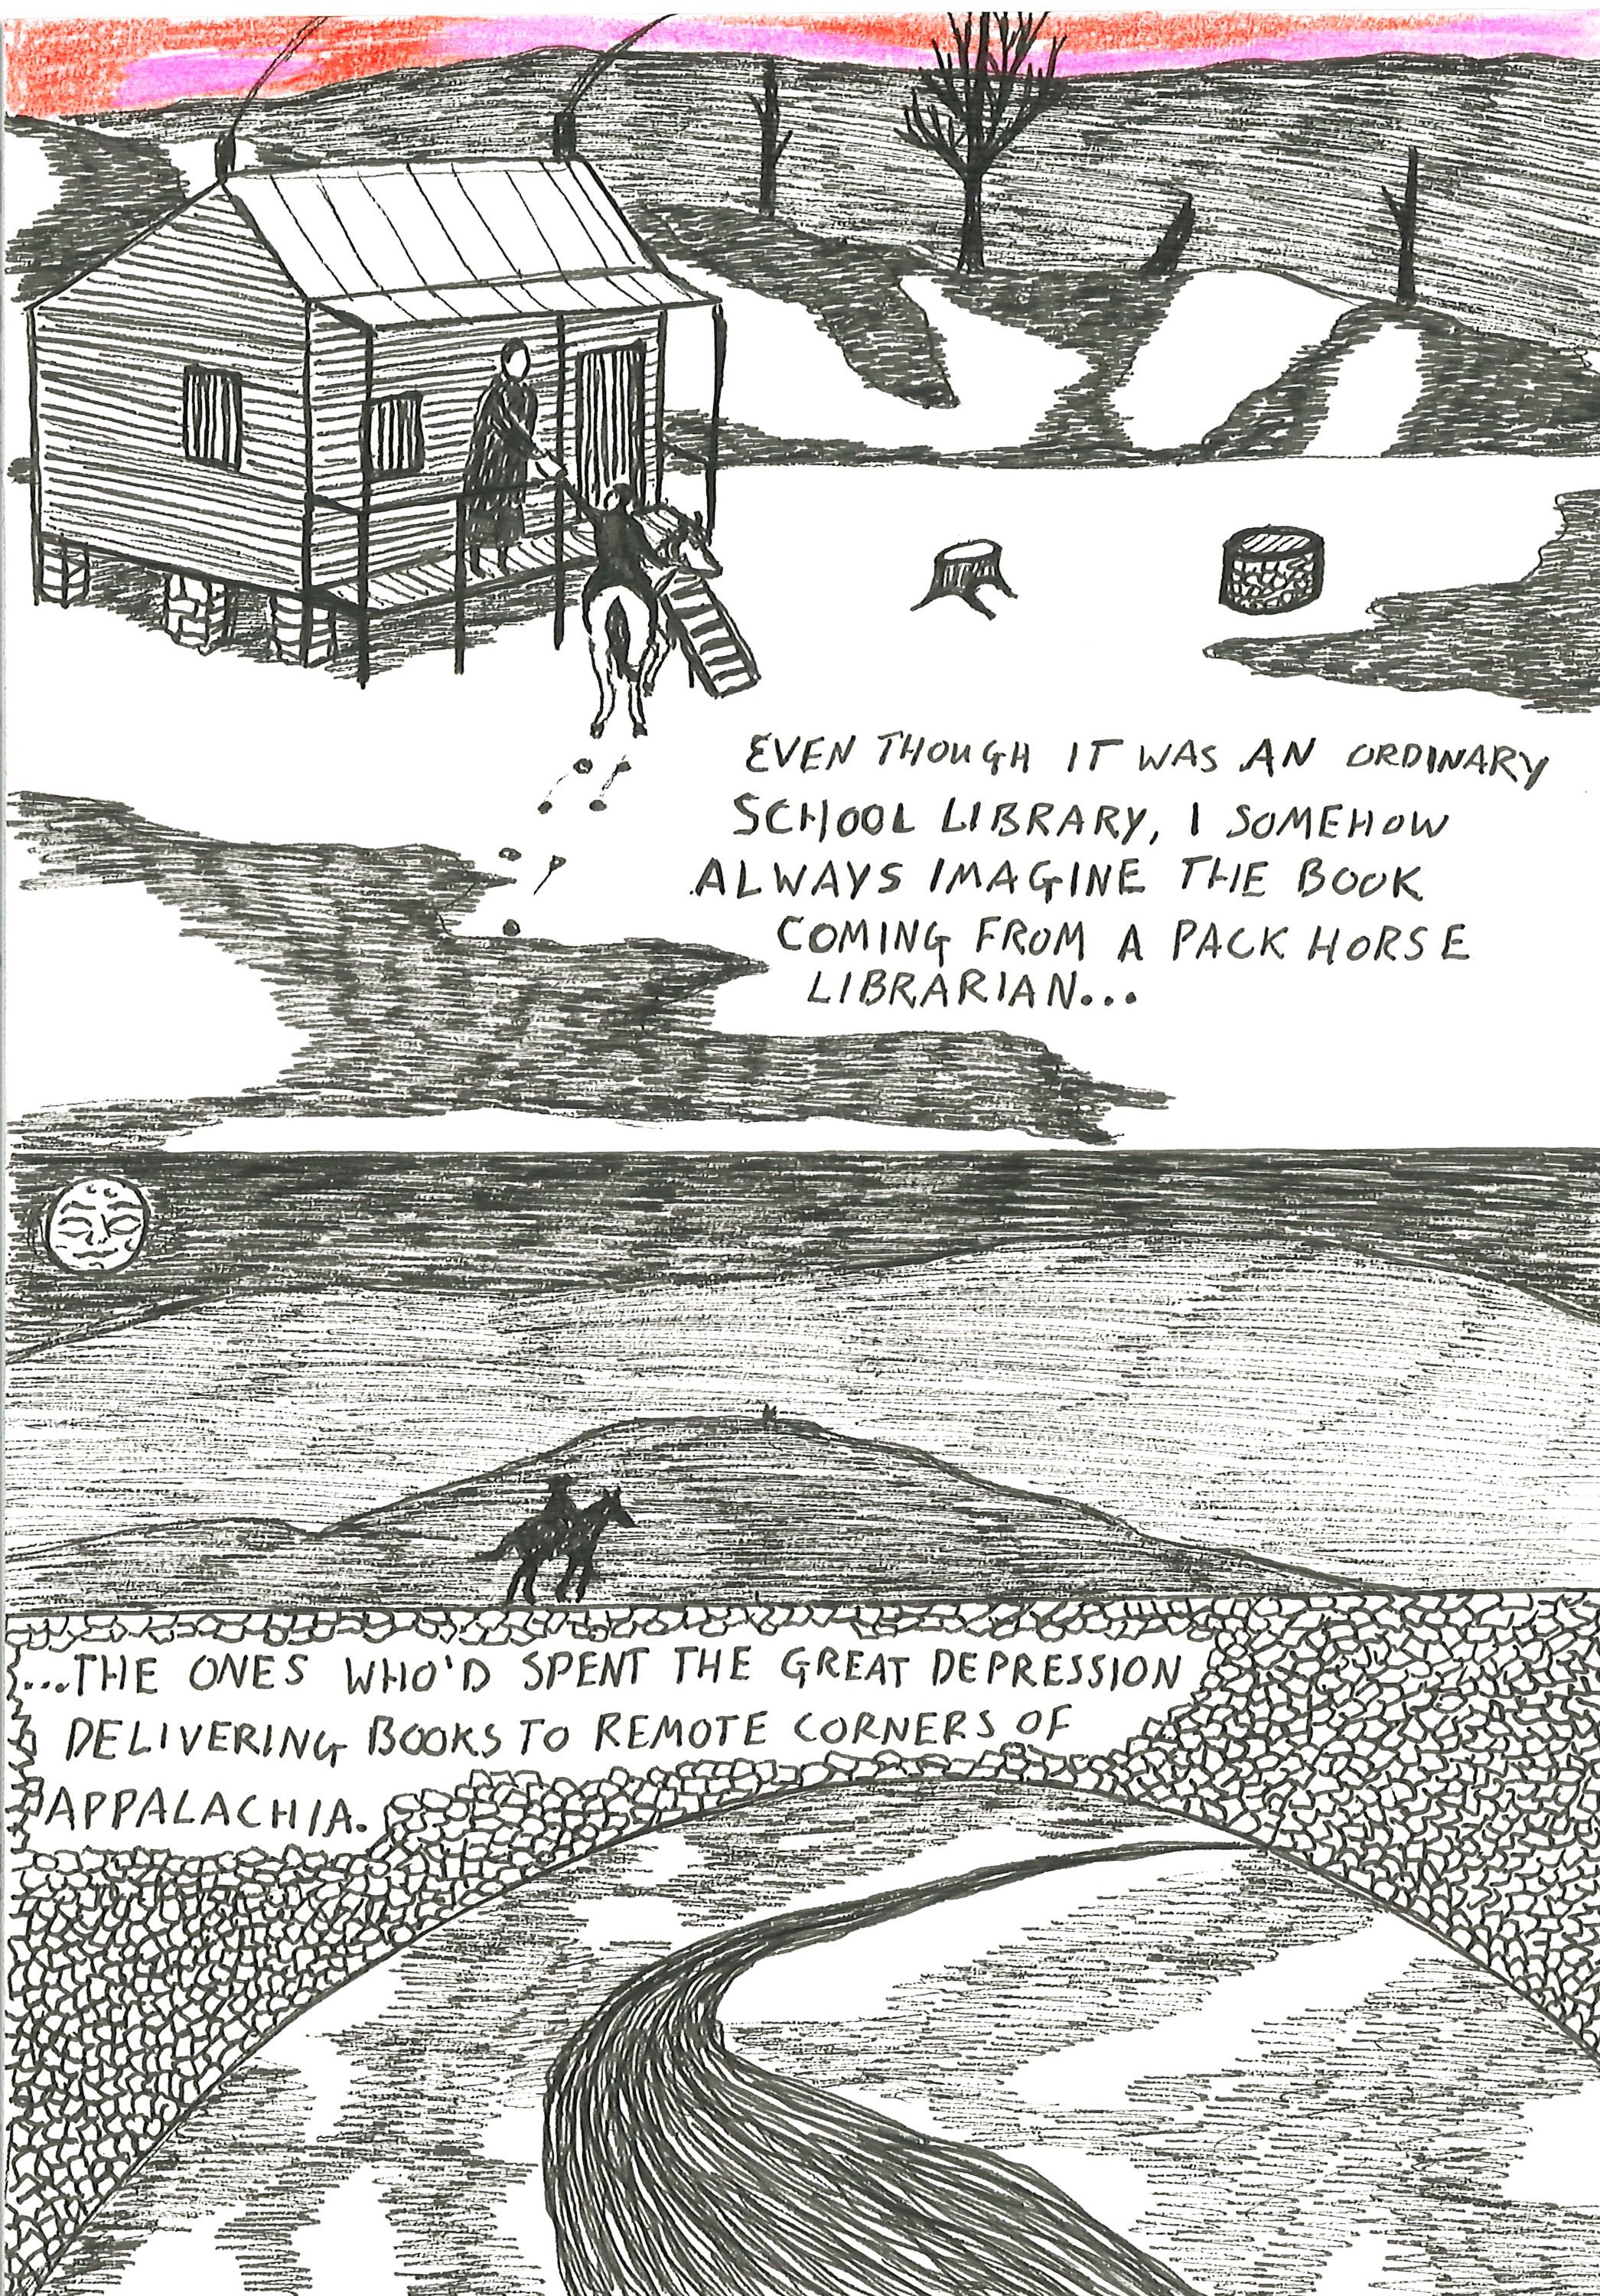 EVEN THOUGH IT WAS AN ORDINARY
SCHOOL LIBRARY, I SOMEHOW
ALWAYS IMAGINE THE BOOK
COMING FROM A PACK HORSE
LIBRARIAN...
...THE ONES WHO'D SPENT THE GREAT DEPRESSION
DELIVERING BOOKS TO REMOTE CORNERS OF
APPALACHIA.